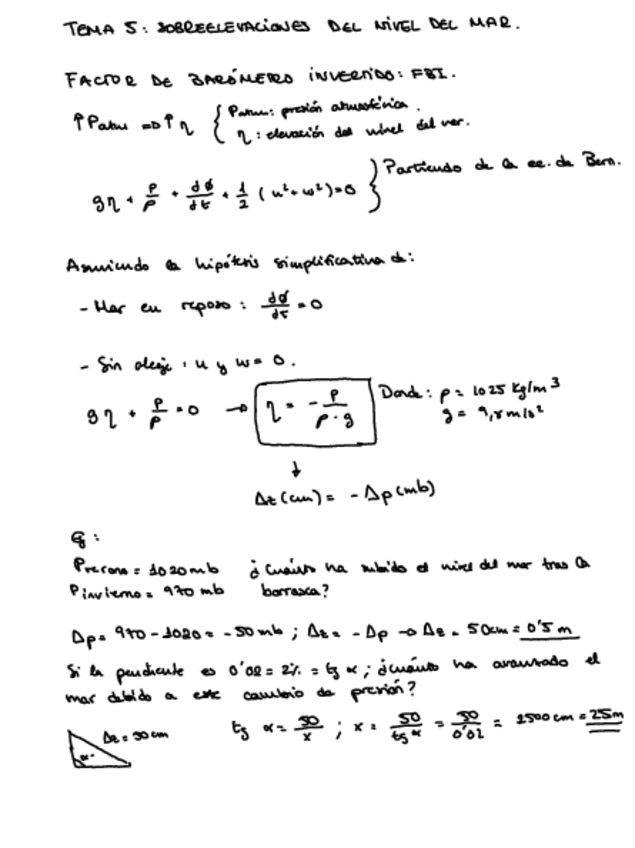 TEMA 5: SOBREELEVACIONES DEL NIVEL DEL MAR.
FACTOR DE BARÓMETRO INVERTIDO: FBI.
↑Patm => ↑η { Patm: presión atmosférica.
η: elevación del nivel del mar.
gη + p/ρ + dφ/dt + 1/2 (u² + w²) = 0 } Partiendo de la ec. de Bern.
Asumiendo la hipótesis simplificativa de:
- Mar en reposo: dφ/dt = 0
- Sin oleaje: u y w = 0.
gη + p/ρ = 0 → η = - p/ρ·g Donde: ρ = 1025 Kg/m³
g = 9,8 m/s²
↓
Δz (cm) = - Δp (mb)
Ej:
Pverano = 1020 mb ¿Cuánto ha subido el nivel del mar tras la
Pinvierno = 970 mb borrasca?
Δp = 970 - 1020 = - 50 mb ; Δz = - Δp → Δz = 50cm = 0'5 m
Si la pendiente es 0'02 = 2% = tg α ; ¿cuánto ha avanzado el
mar debido a este cambio de presión?
Δz = 50 cm tg α = 50/x ; x = 50/tg α = 50/0'02 = 2500 cm = 25m
α